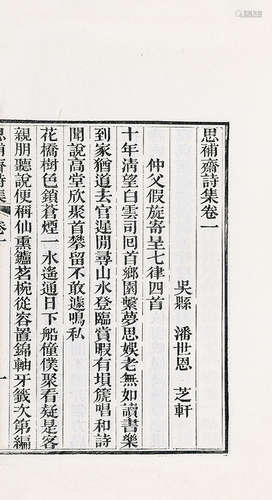 思補齋詩集卷一
吳縣 潘世恩 芝軒
仲父假旋寄呈七律四首
十年清望白雲司回首鄉園縈夢思娛老無如讀書樂
到家猶道去官遲閒尋山水登臨賞暇有塤篪唱和詩
聞說高堂欣聚首攀留不敢遽鳴私
花橋樹色鎖蒼煙一水遙通日下船僮僕聚看疑是客
親朋聽說便稱仙熏鑪茗椀從容置錦軸牙籤次第編
思補齋詩集 卷一 一